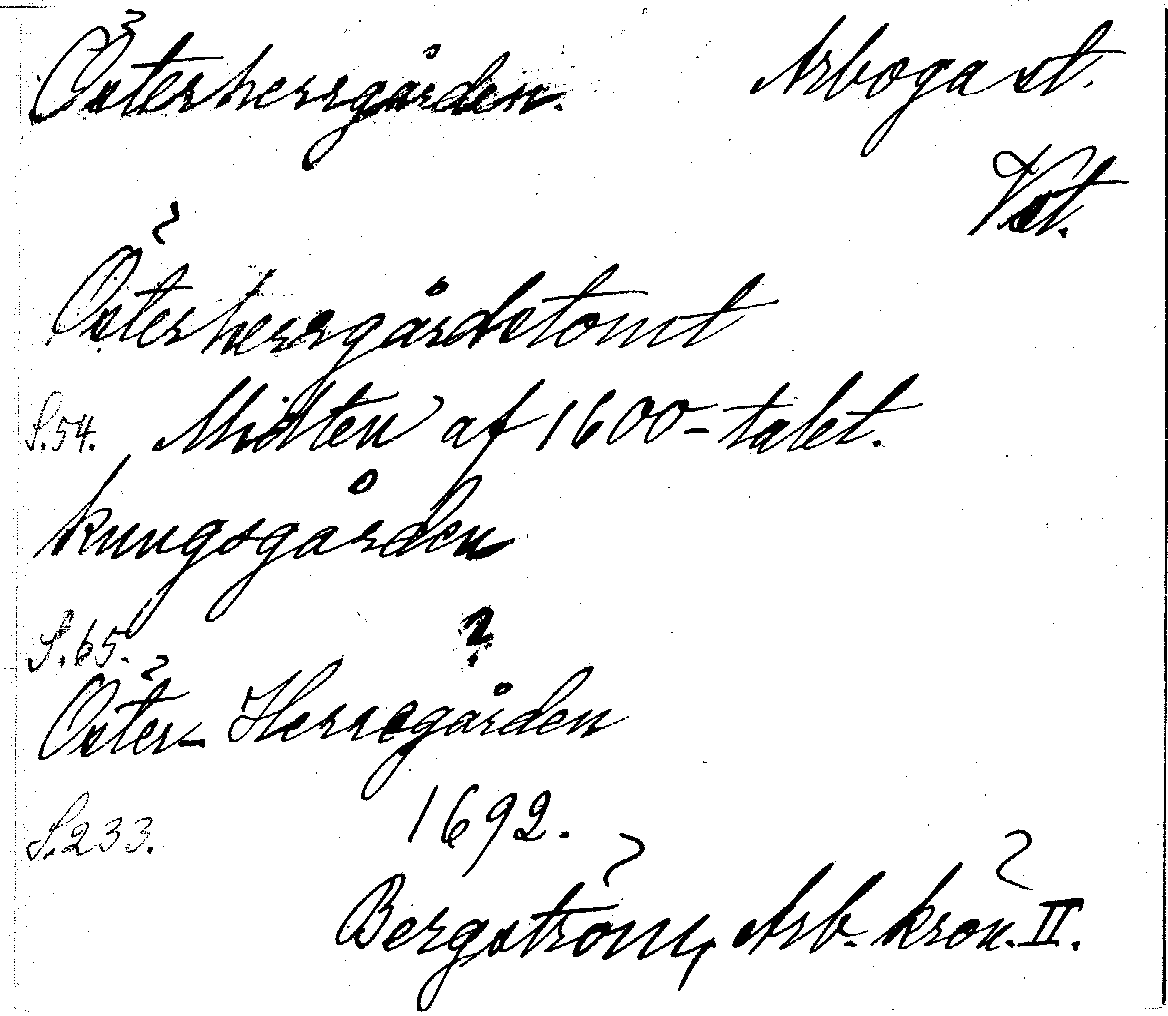 Österherrgården. Arboga st.
Vst.
Österherrgårdstomt
S.54. Midten af 1600-talet.
kungsgården
S.65. ?
Öster- Herregården
S.233. 1692.
Bergström, Arb. krön. II.